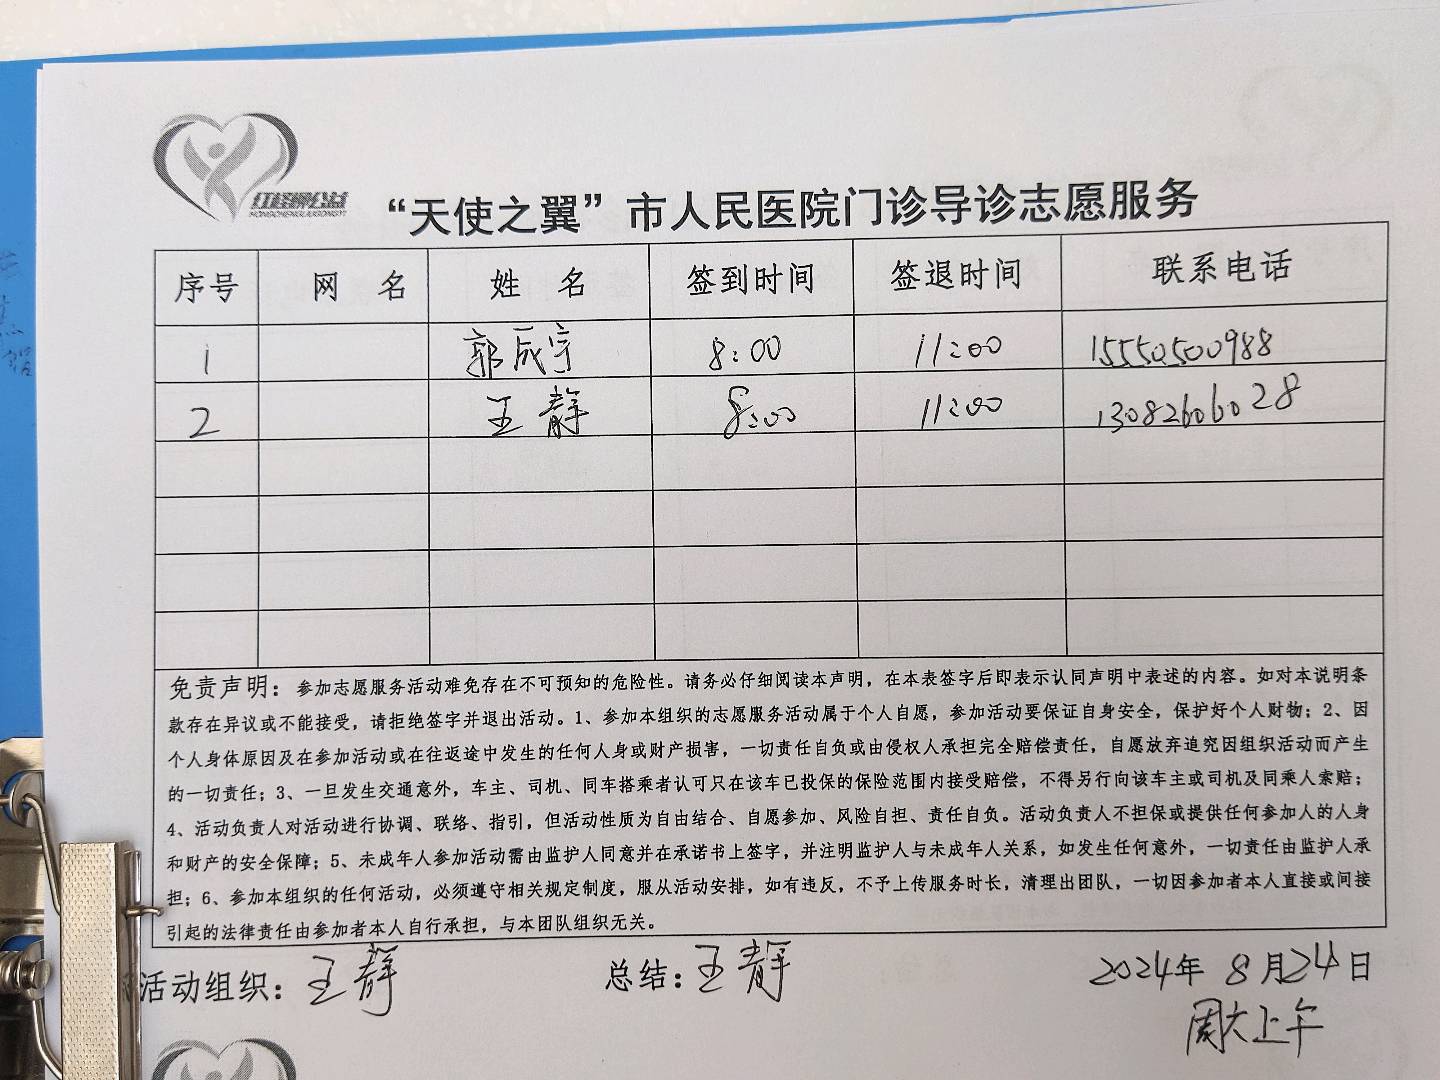 红橙狮公益
HONGCHENGLIONGYI
“天使之翼”市人民医院门诊导诊志愿服务
序号 网 名 姓 名 签到时间 签退时间 联系电话
1 郭成宇 8:00 11:00 15550500988
2 王静 8:00 11:00 13082606028
免责声明：参加志愿服务活动难免存在不可预知的危险性。请务必仔细阅读本声明，在本表签字后即表示认同声明中表述的内容。如对本说明条
款存在异议或不能接受，请拒绝签字并退出活动。1、参加本组织的志愿服务活动属于个人自愿，参加活动要保证自身安全，保护好个人财物；2、因
个人身体原因及在参加活动或在往返途中发生的任何人身或财产损害，一切责任自负或由侵权人承担完全赔偿责任，自愿放弃追究因组织活动而产生
的一切责任；3、一旦发生交通意外，车主、司机、同车搭乘者认可只在该车已投保的保险范围内接受赔偿，不得另行向该车主或司机及同乘人索赔；
4、活动负责人对活动进行协调、联络、指引，但活动性质为自由结合、自愿参加、风险自担、责任自负。活动负责人不担保或提供任何参加人的人身
和财产的安全保障；5、未成年人参加活动需由监护人同意并在承诺书上签字，并注明监护人与未成年人关系，如发生任何意外，一切责任由监护人承
担；6、参加本组织的任何活动，必须遵守相关规定制度，服从活动安排，如有违反，不予上传服务时长，清理出团队，一切因参加者本人直接或间接
引起的法律责任由参加者本人自行承担，与本团队组织无关。
活动组织：王静 总结：王静 2024年 8月24日
周六上午